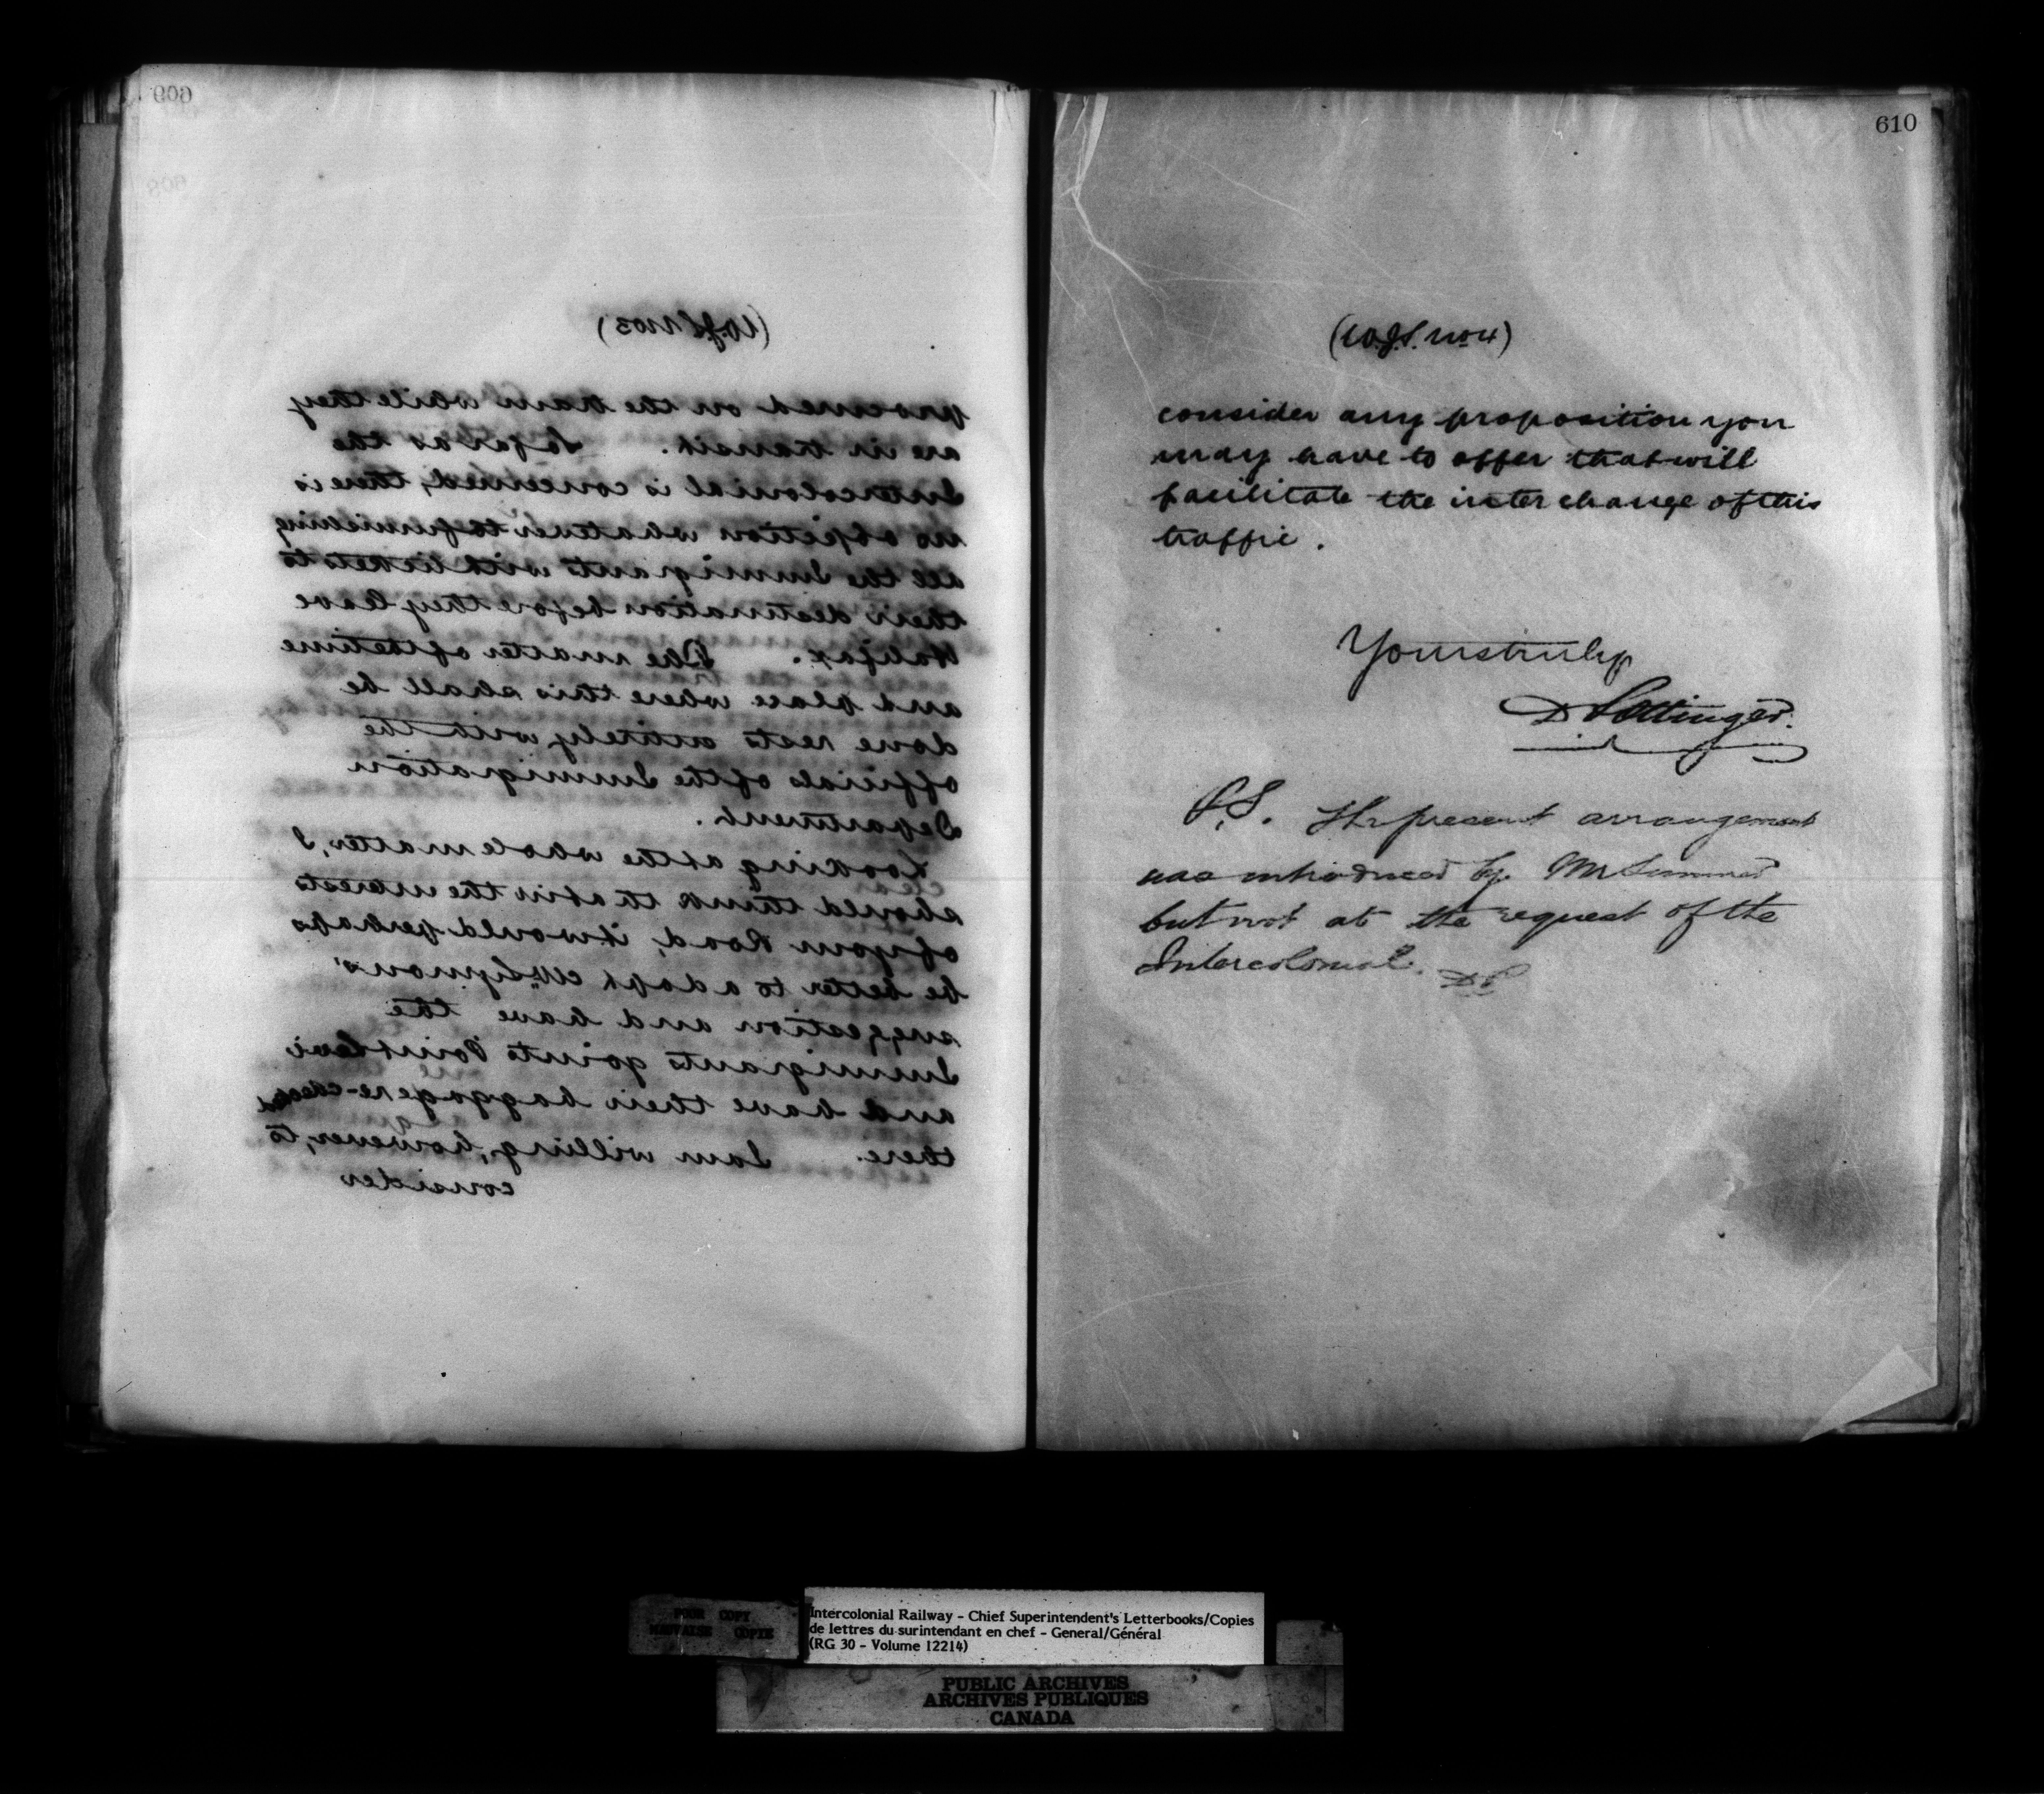 609
(W.J.S. No 3)
procured on the train while they
are in transit. So far as the
Intercolonial is concerned, there is
no objection whatever to furnishing
all the Immigrants with tickets to
their destination before they leave
Halifax. The matter of the time
and place where this shall be
done rests entirely with the
officials of the Immigration
Department.
Looking at the whole matter, I
should think that in the interests
of your Road, it would perhaps
be better to adopt Mr Symons'
suggestion and have the
Immigrants go into Point Levi
and have their baggage re-checked
there. I am willing, however, to
consider
610
(W.J.S. No 4)
consider any proposition you
may have to offer that will
facilitate the inter change of this
traffic.
Yours truly
D Pottinger.
P.S. The present arrangement
was introduced by Mr
but not at the request of the
Intercolonial. DP
POOR COPY
MAUVAISE COPIE
Intercolonial Railway - Chief Superintendent's Letterbooks/Copies
de lettres du surintendant en chef - General/Général
(RG 30 - Volume 12214)
PUBLIC ARCHIVES
ARCHIVES PUBLIQUES
CANADA